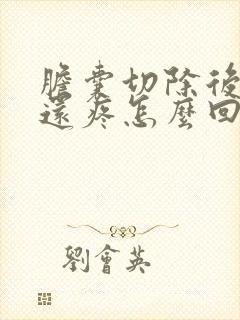 膽囊切除後
還疼怎麼回
劉會英